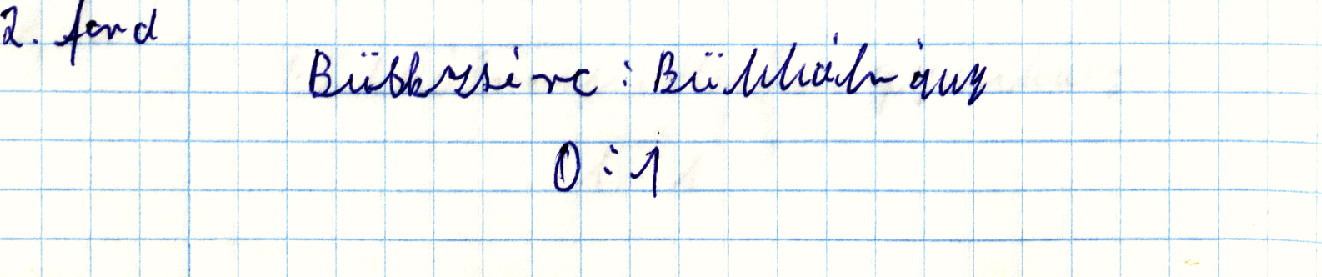 2. ford
Bükkzsérc : Bükkábrány
0 : 1